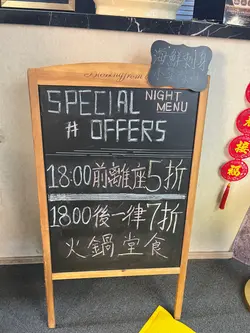 海鮮刺身
SPECIAL NIGHT MENU
# OFFERS
18:00前離座5折
18:00後一律7折
火鍋堂食